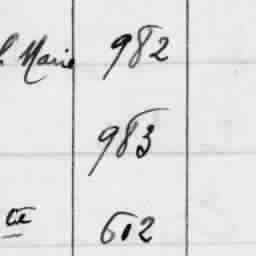 Marie 982
983
te 612